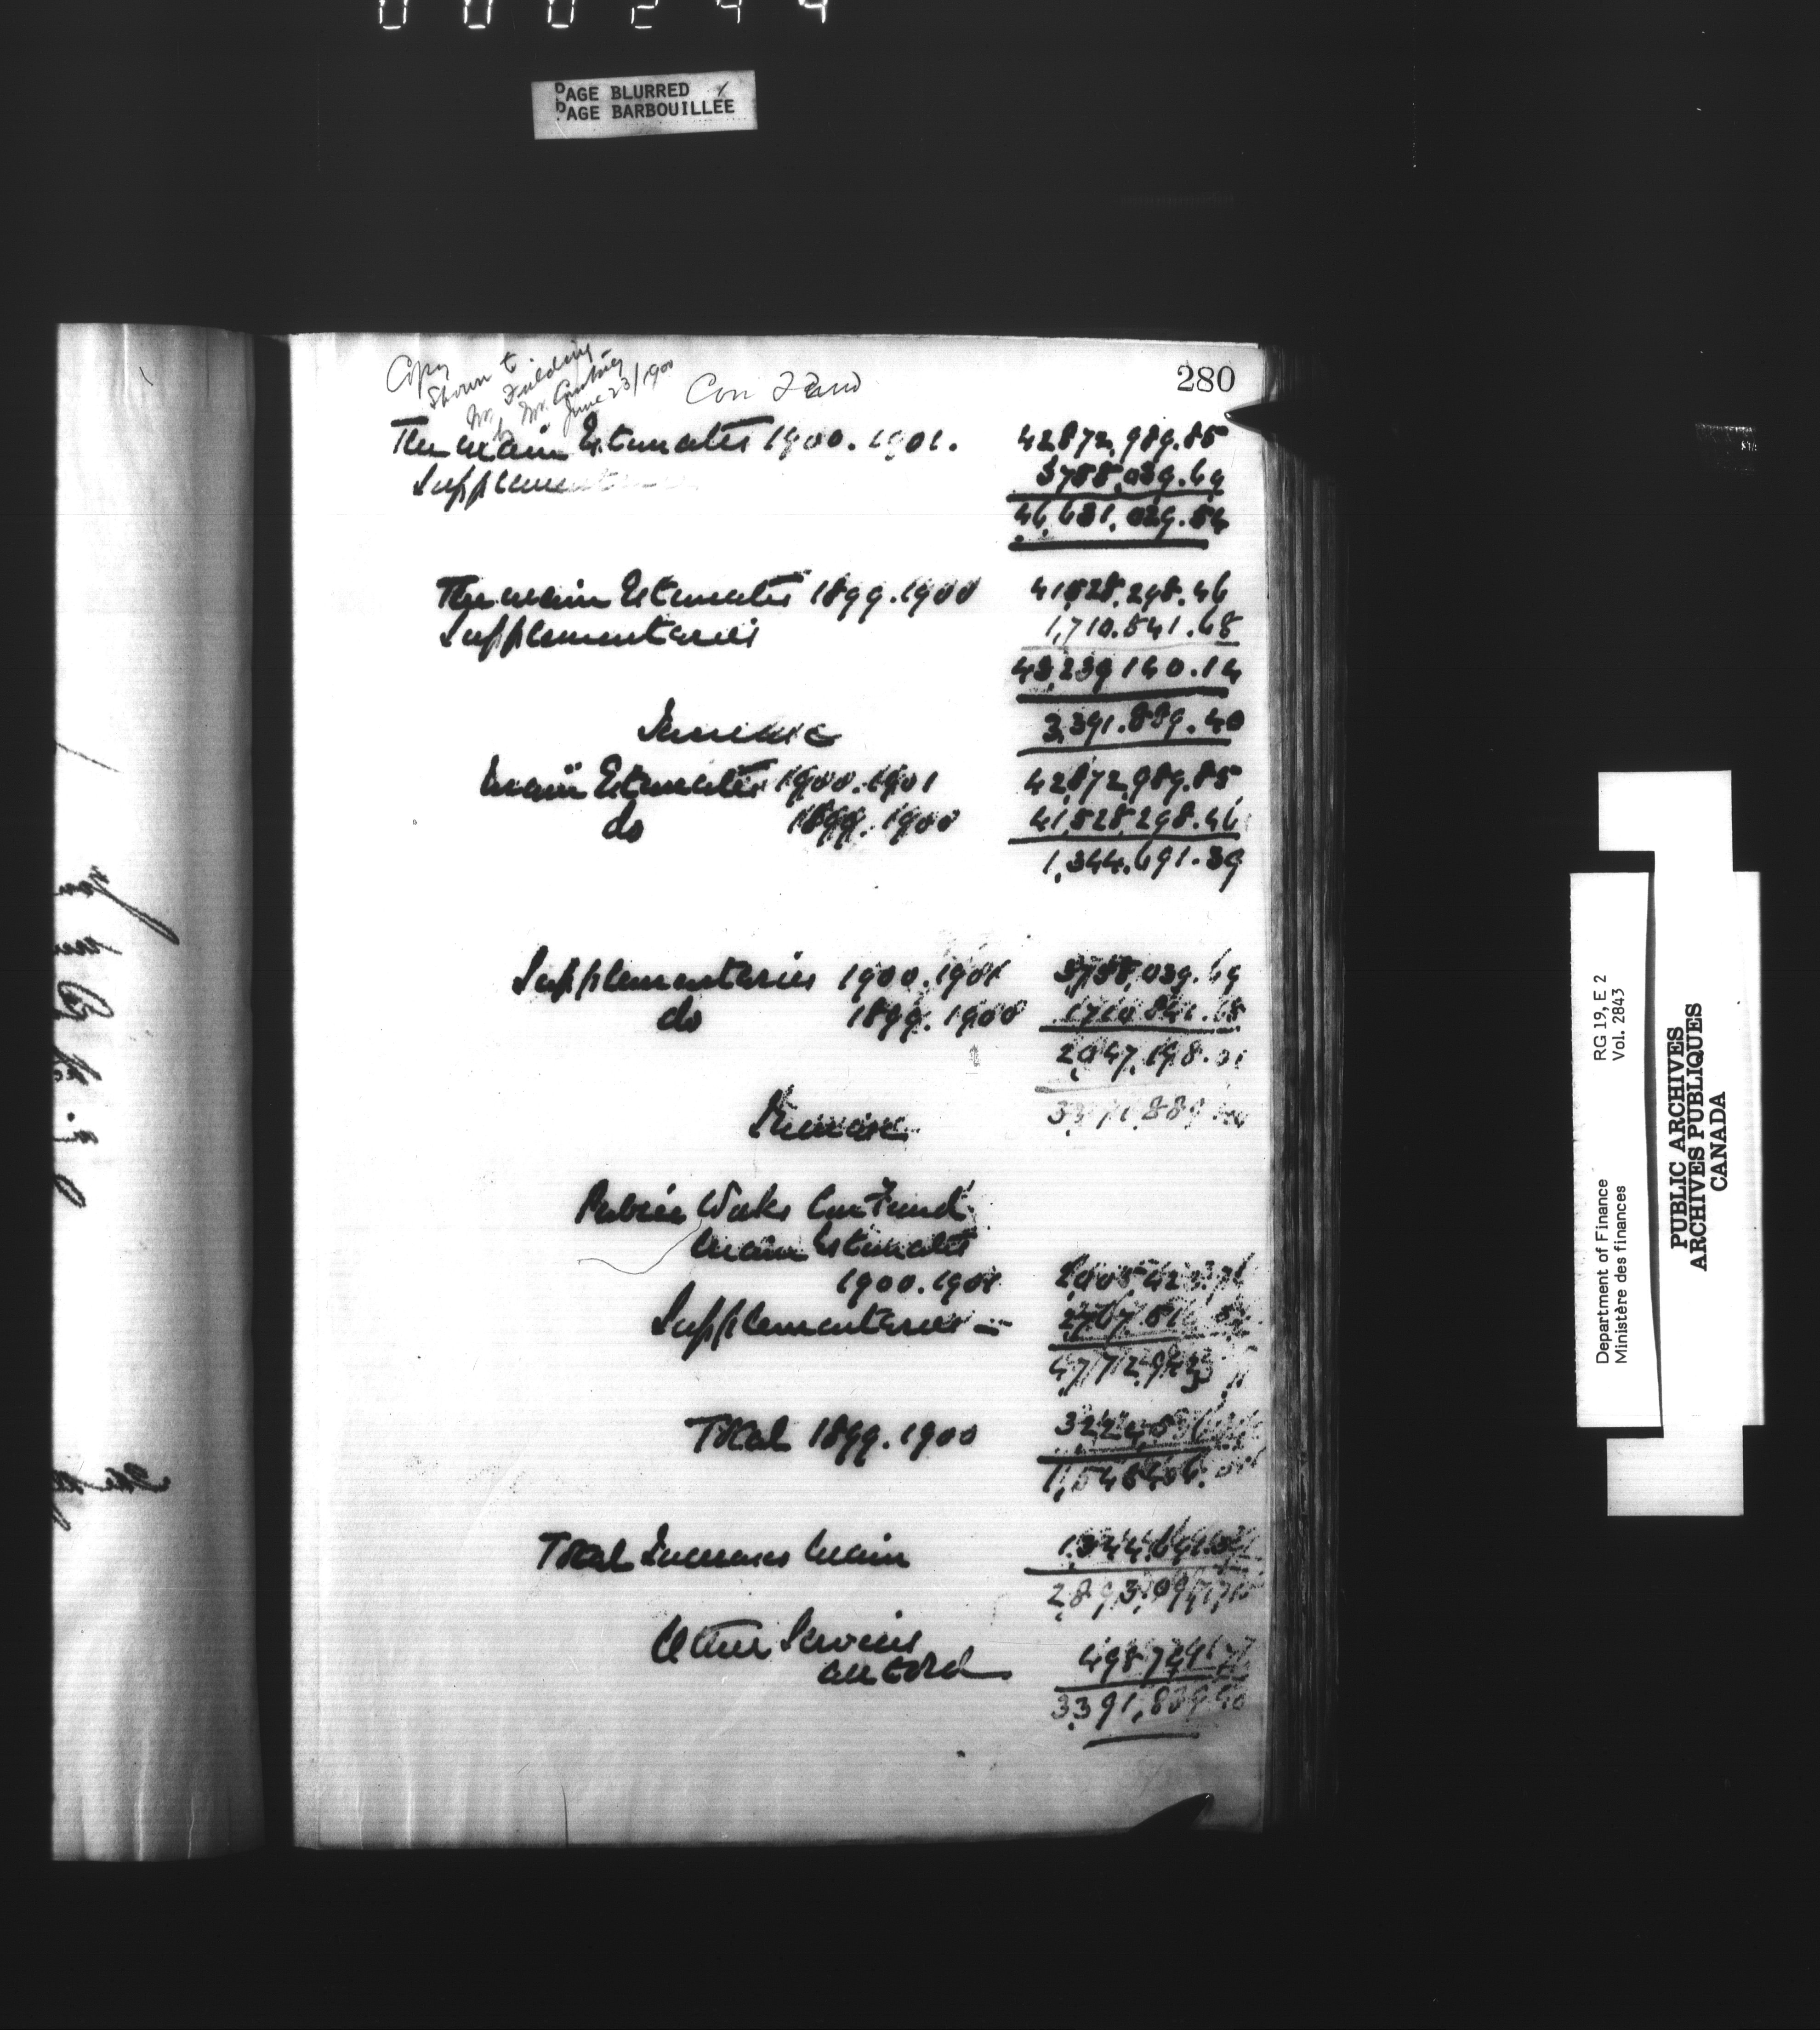 000244
PAGE BLURRED
PAGE BARBOUILLEE
280
Copy
Shown to
Mr Fielding
by Mr. Courtney
June 23/1900
Con Fund
The main Estimates 1900.1901. 42,872,989.85
Supplementaries 3,758,039.69
46,631,029.54
The main Estimates 1899.1900 41,528,298.46
Supplementaries 1,710,841.68
43,239,140.14
Increase 3,391,889.40
Main Estimates 1900.1901 42,872,989.85
do 1899.1900 41,528,298.46
1,344,691.39
Supplementaries 1900.1901 3,758,039.69
do 1899.1900 1,710,841.68
2,047,198.01
Increase 3,391,889.40
Public Works Con Fund
Main Estimates
1900.1901
Supplementaries –
Total 1899.1900
Total Increases Main 1,344,691.39
Other Services
all told
3,391,889.40
Department of Finance RG 19, E 2
Ministère des finances Vol. 2843
PUBLIC ARCHIVES
ARCHIVES PUBLIQUES
CANADA